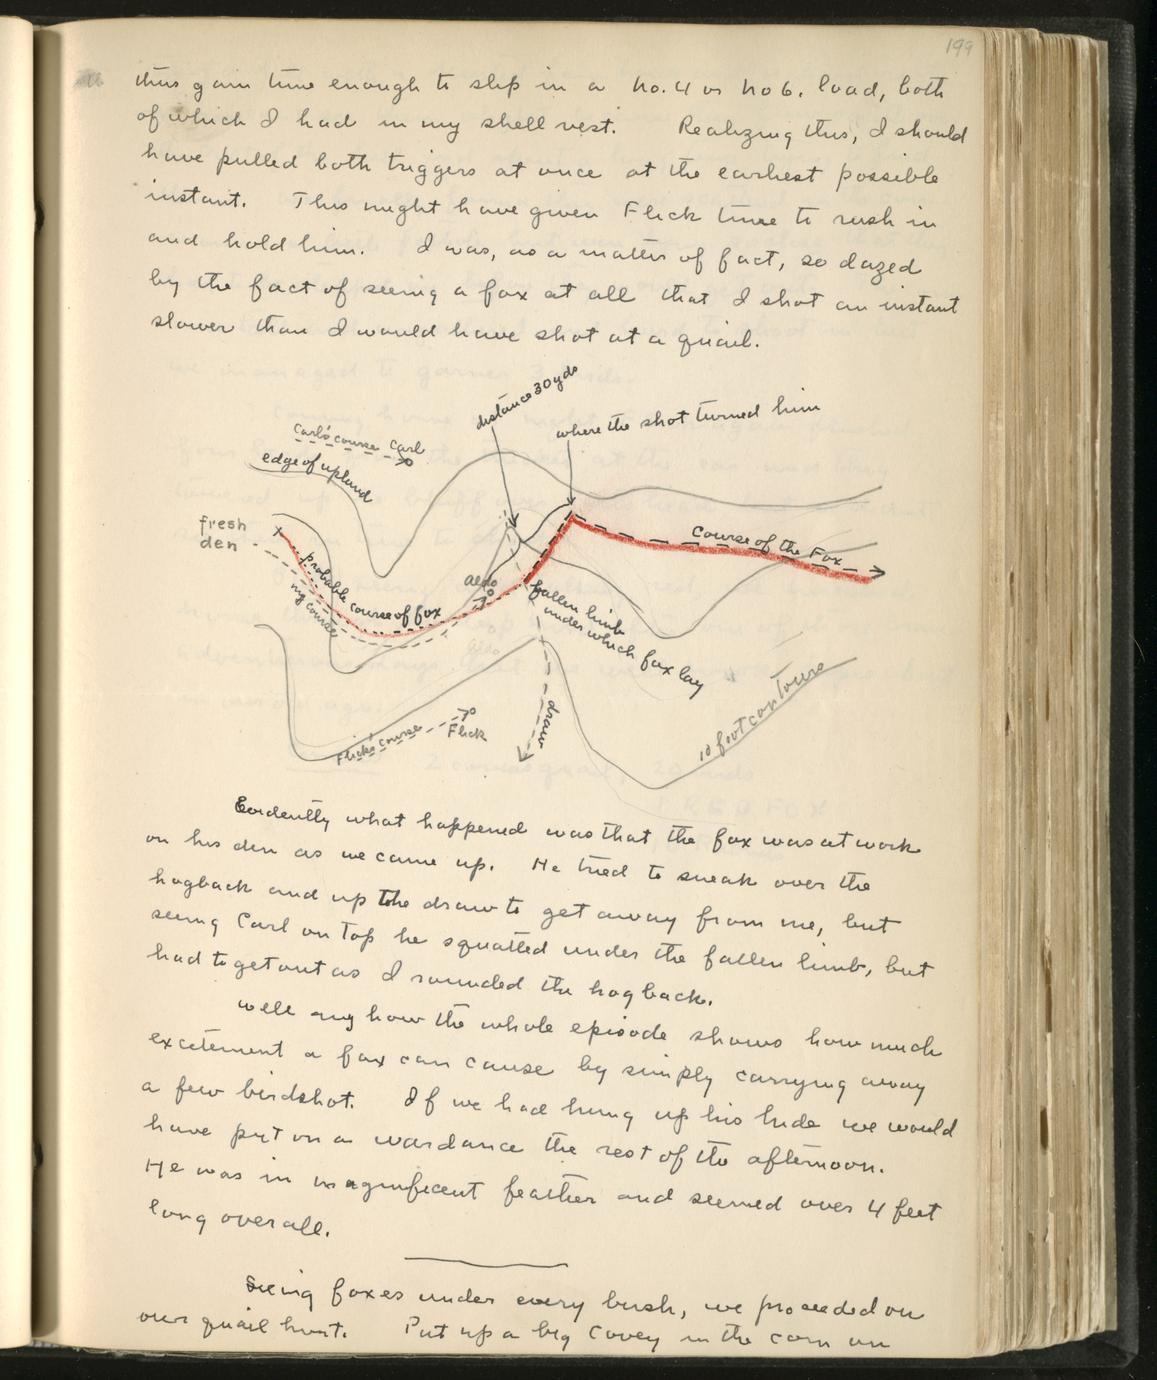 199
thus gain time enough to slip in a No. 4 or No 6. load, both
of which I had in my shell vest. Realizing this, I should
have pulled both triggers at once at the earliest possible
instant. This might have given Flick time to rush in
and hold him. I was, as a matter of fact, so dazed
by the fact of seeing a fox at all that I shot an instant
slower than I would have shot at a quail.
distance 30 yds
where the shot turned him
Carl's course Carl
edge of upland
fresh
den
Course of the Fox
probable course of fox
my course
aldo
aldo
fallen limb
under which fox lay
draw
Flick's course
Flick
10 foot contours
Evidently what happened was that the fox was at work
on his den as we came up. He tried to sneak over the
hogback and up the draw to get away from me, but
seeing Carl on top he squatted under the fallen limb, but
had to get out as I rounded the hogback.
Well any how the whole episode shows how much
excitement a fox can cause by simply carrying away
a few birdshot. If we had hung up his hide we would
have put on a wardance the rest of the afternoon.
He was in magnificent feather and seemed over 4 feet
long over all.
Seeing foxes under every bush, we proceeded on
our quail hunt. Put up a big covey in the corn on